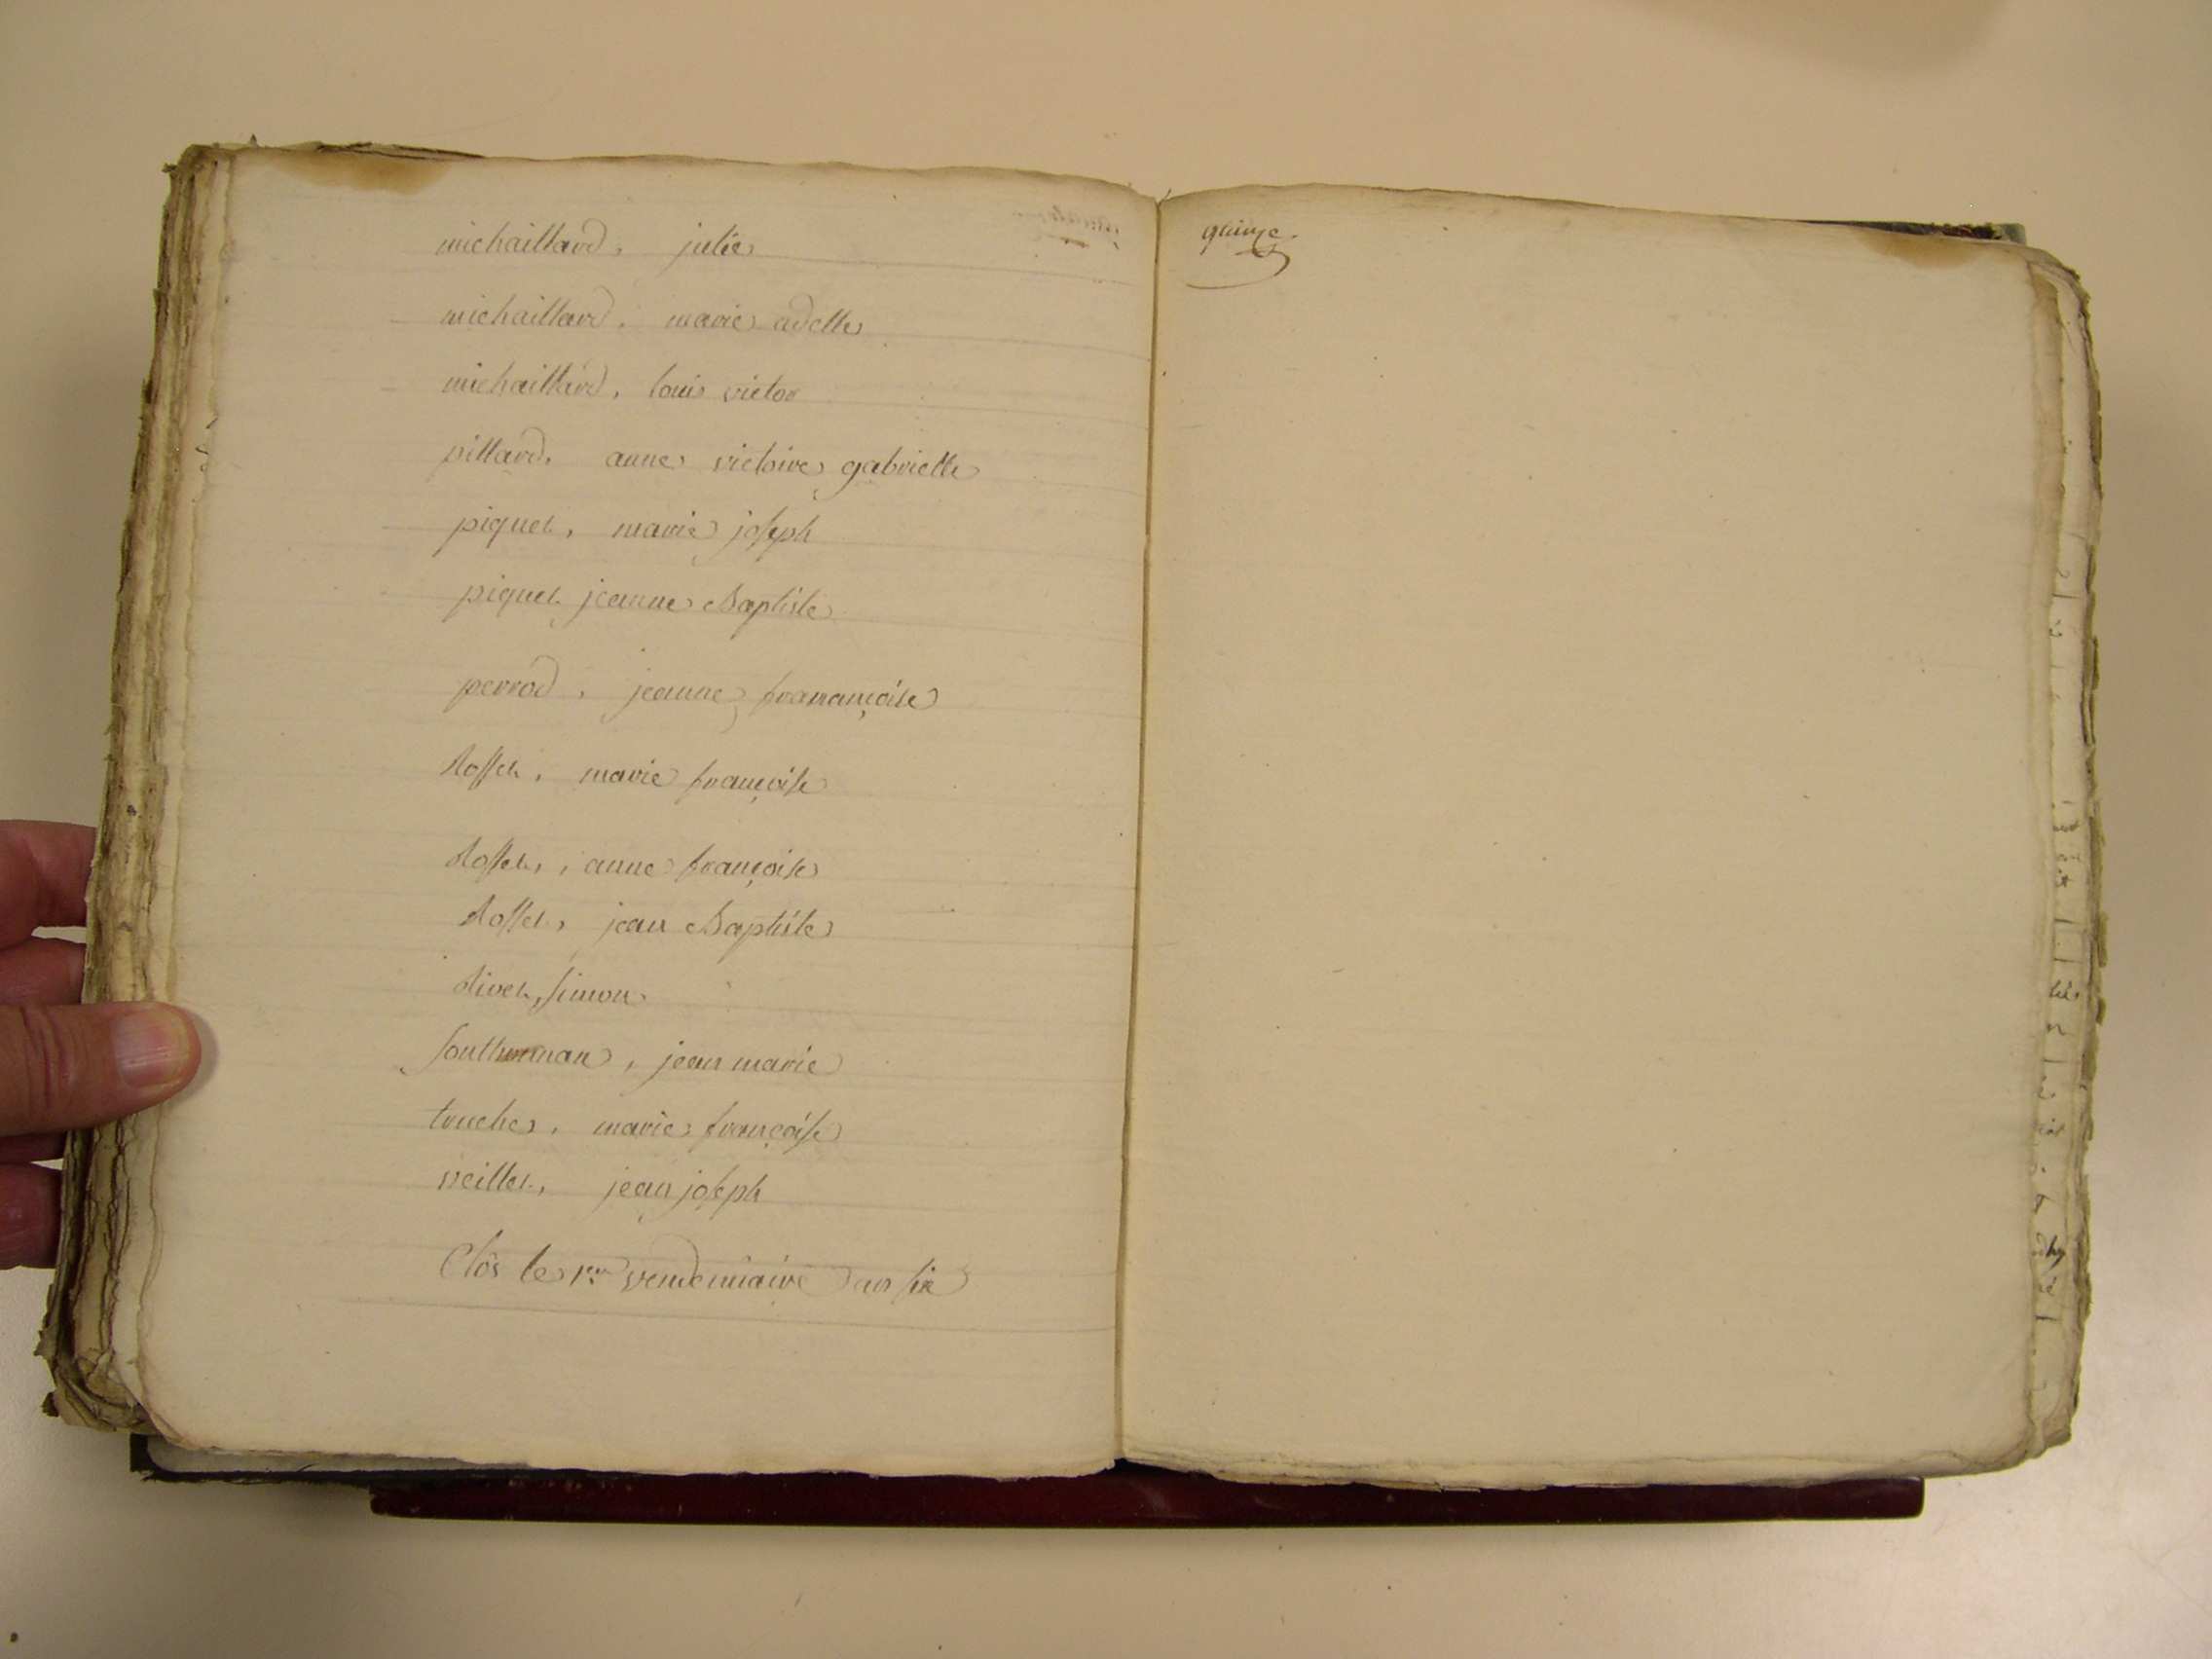 michaillard, julie
michaillard, marie adelle
michaillard, louis victor
pillard, anne victoire gabrielle
piquet, marie joseph
piquet jeanne Baptiste
perrod, jeanne franançoise
Rosset, marie françoise
Rosset, anne françoise
Rosset, jean Baptiste
Rivet, simon
jean marie
truche, marie françoise
veillet, jean joseph
Clôs le 1er vendemiaire an six
quinze.